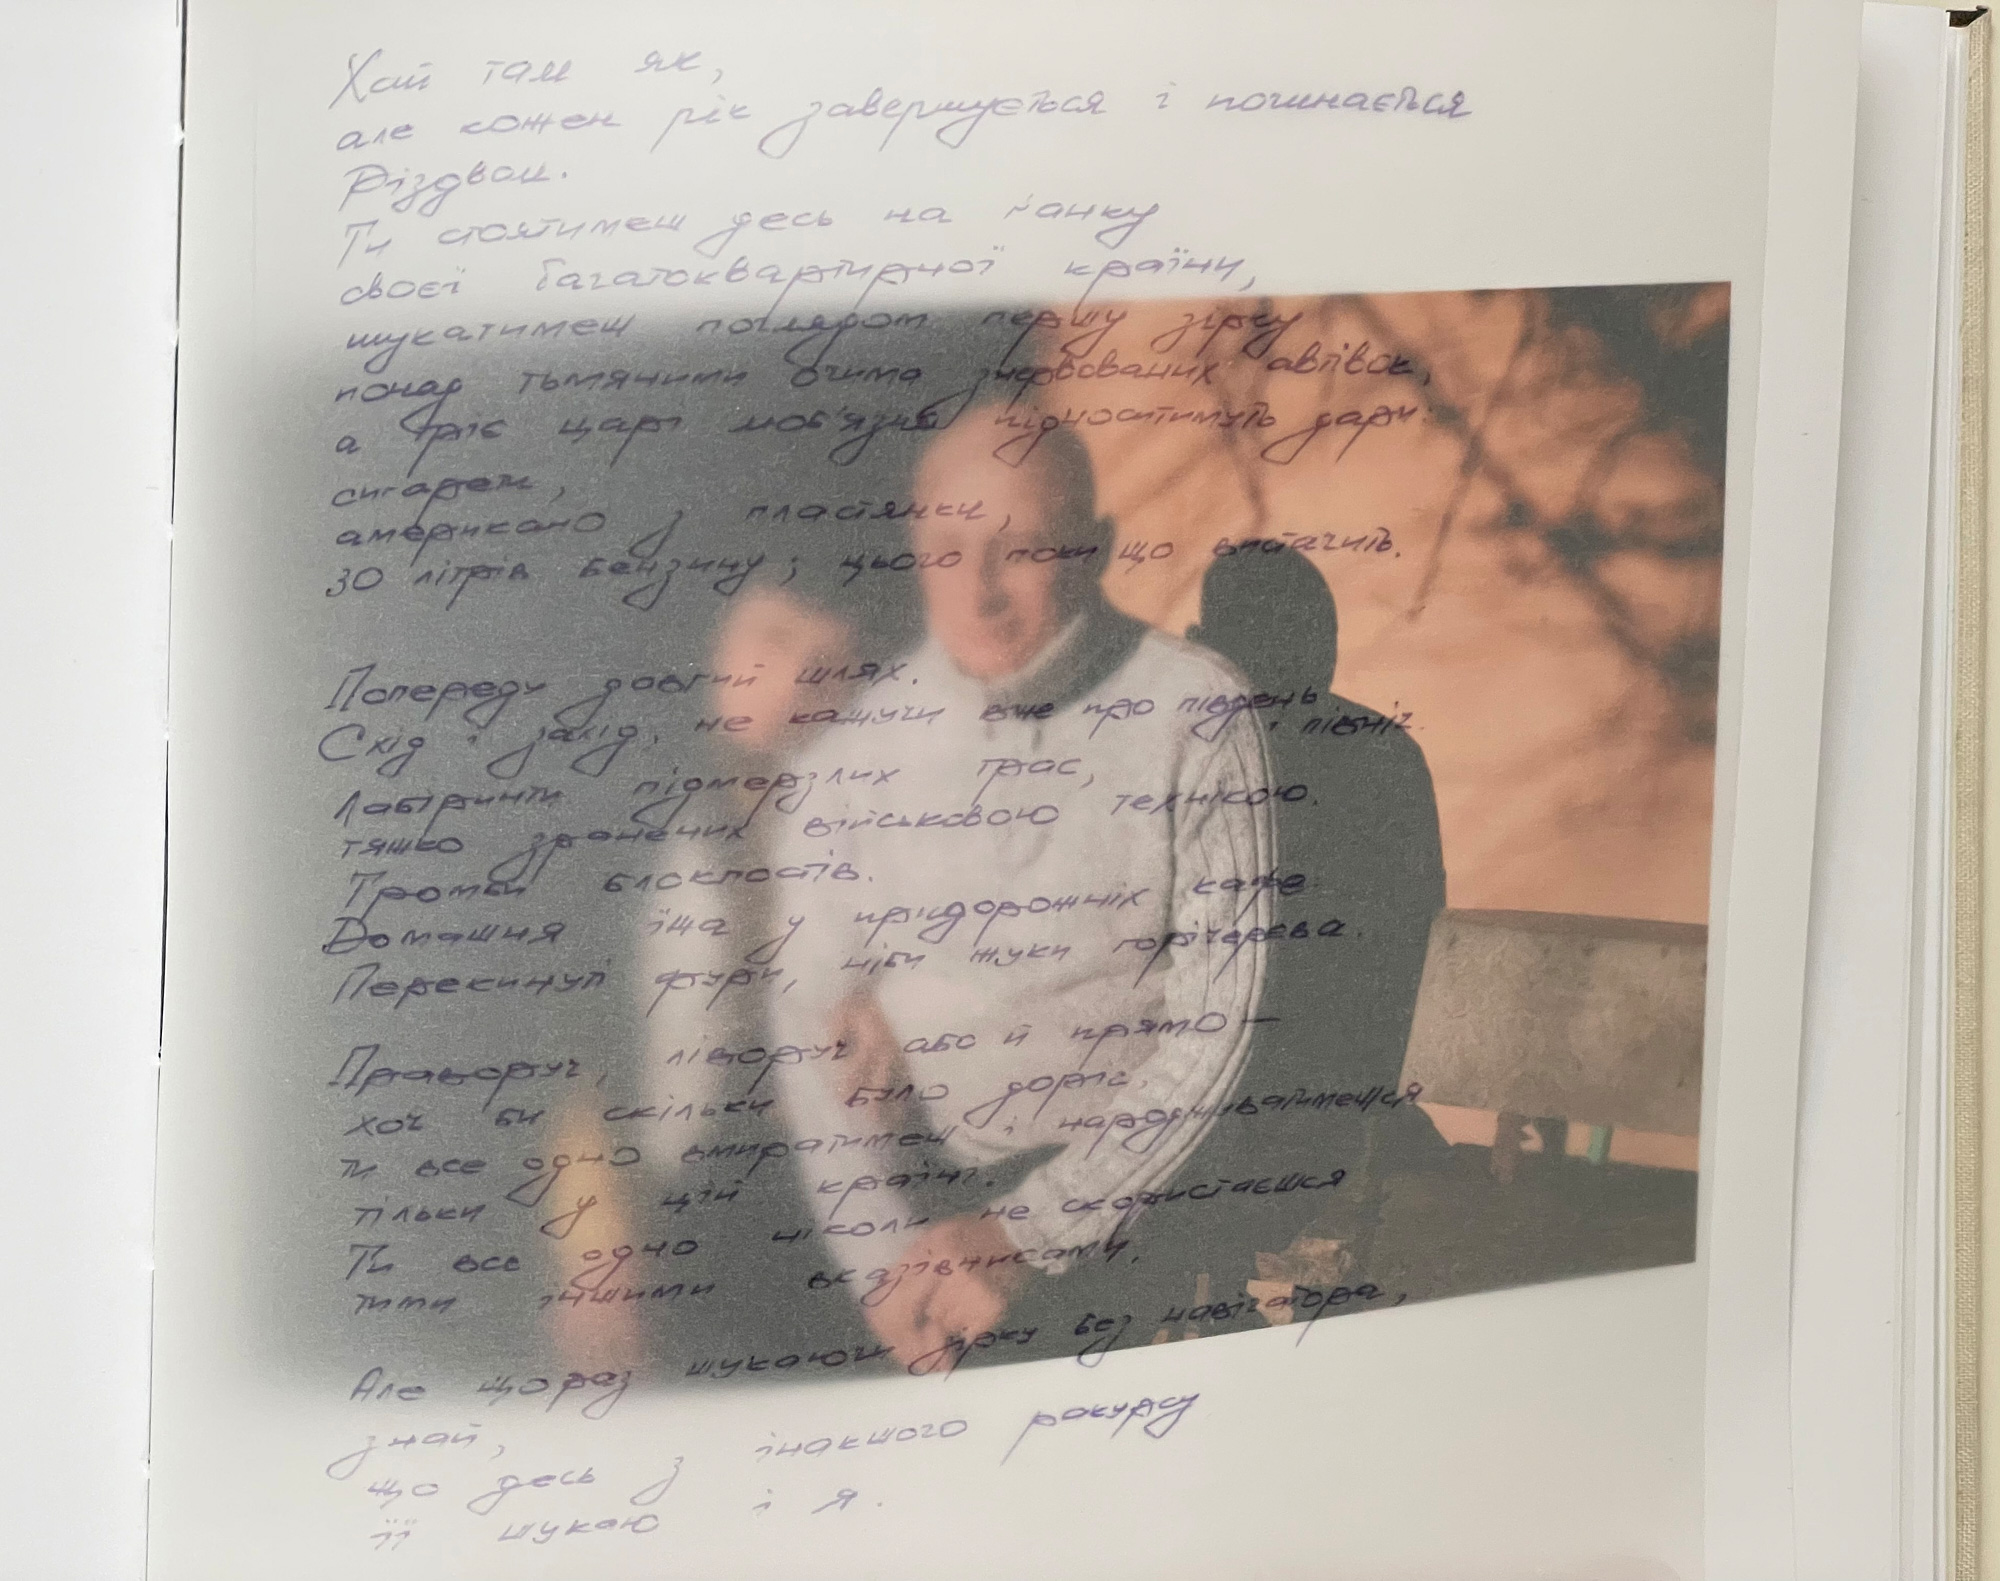 Хай там як,
але кожен рік завершується і починається
Різдвом.
Ти стоятимеш десь на ґанку
своєї багатоквартирної країни,
шукатимеш поглядом першу зірку
понад тьмяними очима знервованих автівок,
а троє царі моб'язня підноситимуть дари:
сигарети,
американо з пластянки,
30 літрів бензину; цього поки що вистачить.
Попереду довгий шлях.
Схід і захід, не кажучи вже про південь
і північ.
Лабіринти підмерзлих трас,
тяжко зранених військовою технікою.
Тромби блокпостів.
Домашня їжа у придорожніх кафе.
Перекинуті фури, ніби жуки горічерева.
Праворуч, ліворуч або й прямо —
хоч би скільки було доріг,
ти все одно вмиратимеш і народжуватимешся
тільки у цій країні.
Ти все одно ніколи не скористаєшся
тими іншими вказівниками.
Але щораз шукаючи зірку без навігатора,
знай,
що десь з інакшого ракурсу
її шукаю і я.